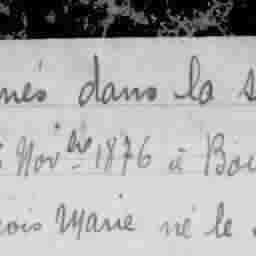 nés dans la s
Nov bre 1876 à Bou
cois Marie né le